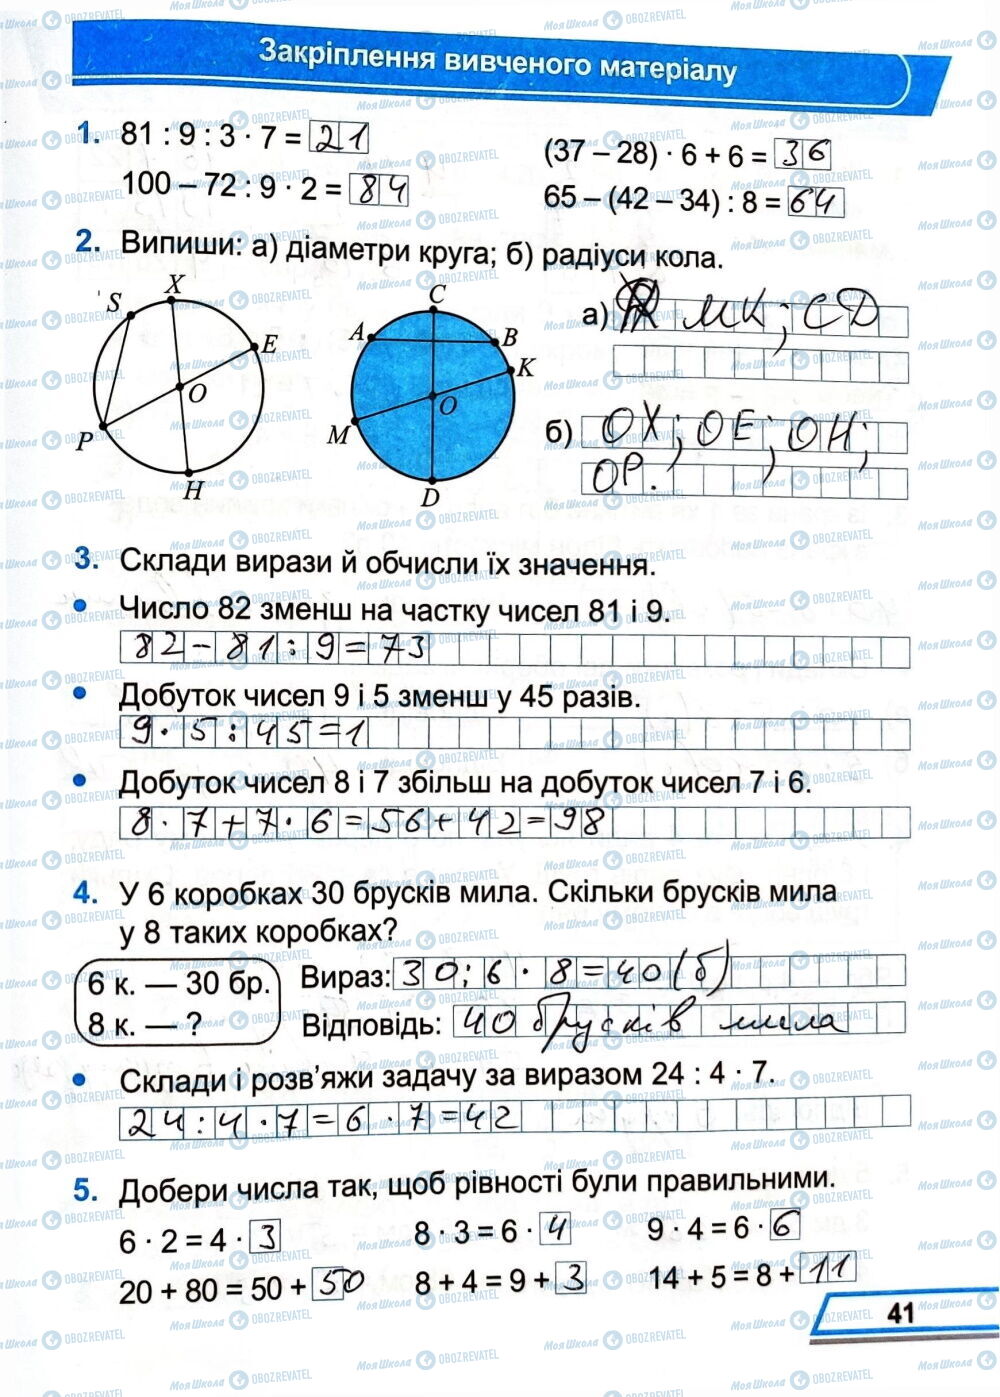 Закріплення вивченого матеріалу
1. 81 : 9 : 3 · 7 = 21
(37 – 28) · 6 + 6 = 36
100 – 72 : 9 · 2 = 84
65 – (42 – 34) : 8 = 64
2. Випиши: а) діаметри круга; б) радіуси кола.
S X E O P H
A C B K O M D
а) МК; CD
б) ОХ; ОЕ; ОН;
ОР.
3. Склади вирази й обчисли їх значення.
• Число 82 зменш на частку чисел 81 і 9.
82 – 81 : 9 = 73
• Добуток чисел 9 і 5 зменш у 45 разів.
9 · 5 : 45 = 1
• Добуток чисел 8 і 7 збільш на добуток чисел 7 і 6.
8 · 7 + 7 · 6 = 56 + 42 = 98
4. У 6 коробках 30 брусків мила. Скільки брусків мила
у 8 таких коробках?
6 к. — 30 бр.
8 к. — ?
Вираз: 30 : 6 · 8 = 40 (б)
Відповідь: 40 брусків мила
• Склади і розв’яжи задачу за виразом 24 : 4 · 7.
24 : 4 · 7 = 6 · 7 = 42
5. Добери числа так, щоб рівності були правильними.
6 · 2 = 4 · 3
8 · 3 = 6 · 4
9 · 4 = 6 · 6
20 + 80 = 50 + 50
8 + 4 = 9 + 3
14 + 5 = 8 + 11
41
МояШкола OBOZREVATEL